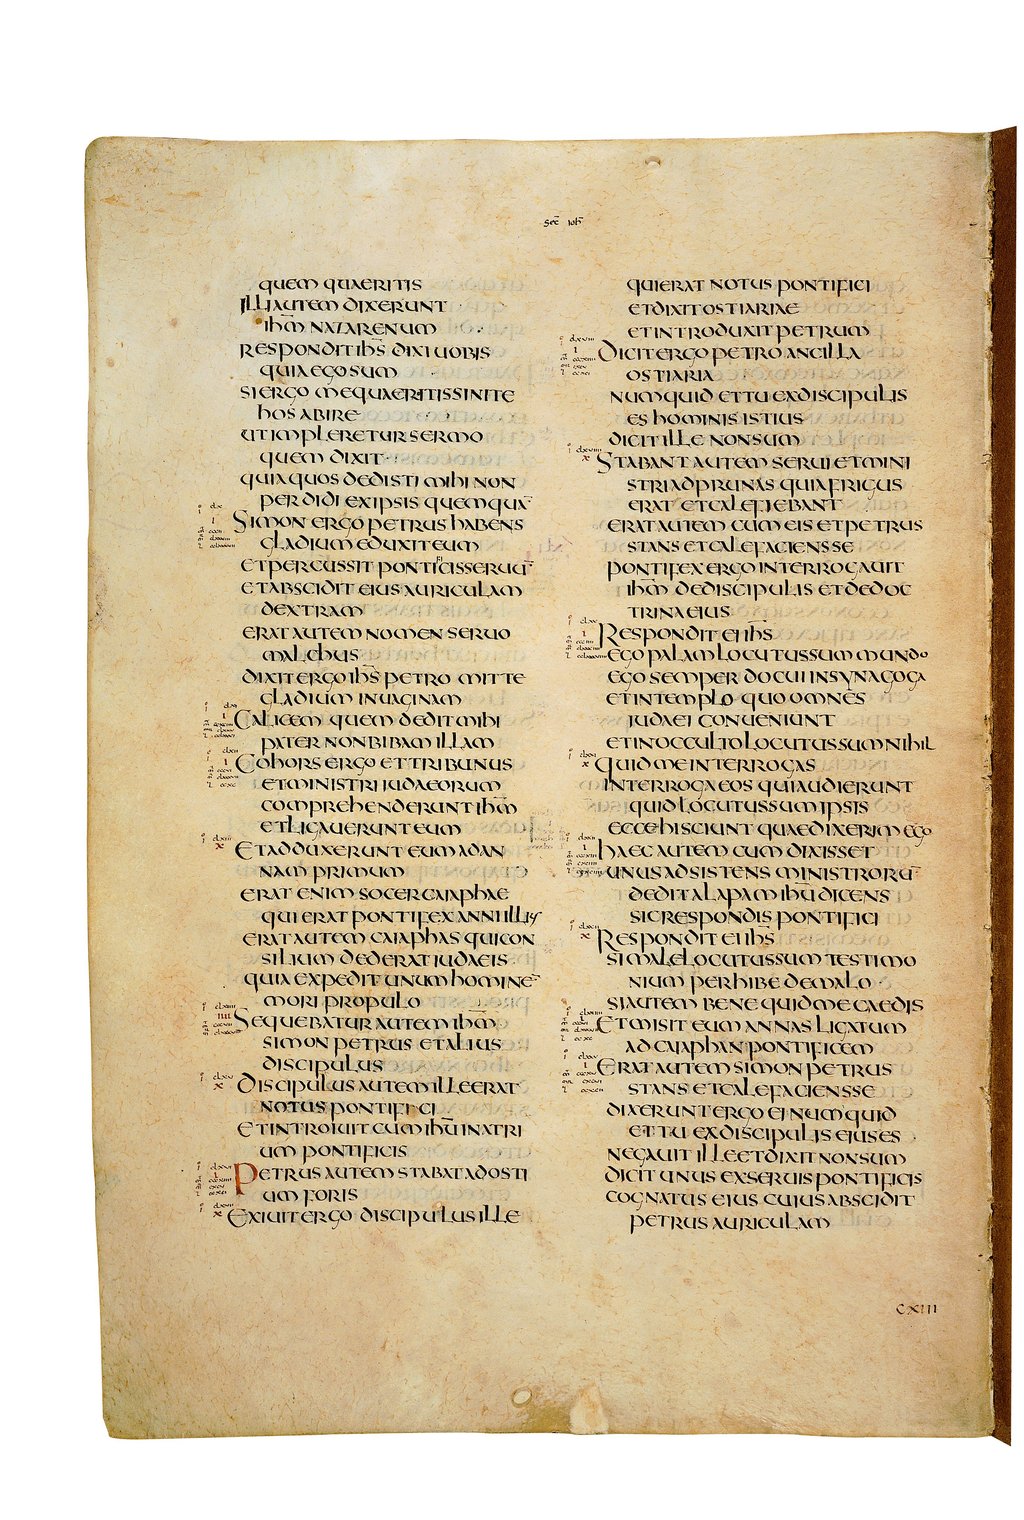 sec ioh
quem quaeritis
Illi autem dixerunt
ihm nazarenum
respondit ihs dixi uobis
quia ego sum
si ergo me quaeritis sinite
hos abire
ut impleretur sermo
quem dixit
quia quos dedisti mihi non
perdidi ex ipsis quemqua
Simon ergo petrus habens
gladium eduxit eum
et percussit pontificis seruu
et abscidit eius auriculam
dextram
erat autem nomen seruo
malchus
dixit ergo ihs petro mitte
gladium in uaginam
Calicem quem dedit mihi
pater non bibam illam
Cohors ergo et tribunus
et ministri iudaeorum
comprehenderunt ihm
et ligauerunt eum
Et adduxerunt eum ad an
nam primum
erat enim socer caiaphae
qui erat pontifex anni illis
erat autem caiaphas qui con
silium dederat iudaeis
quia expedit unum homine
mori pro populo
Sequebatur autem ihm
simon petrus et alius
discipulus
Discipulus autem ille erat
notus pontifici
et introiuit cum ihu in atri
um pontificis
Petrus autem stabat ad osti
um foris
Exiuit ergo discipulus ille
qui erat notus pontifici
et dixit ostiariae
et introduxit petrum
Dicit ergo petro ancilla
ostiaria
numquid et tu ex discipulis
es hominis istius
dicit ille non sum
Stabant autem serui et mini
stri ad prunas quia frigus
erat et calefiebant
erat autem cum eis et petrus
stans et calefaciens se
pontifex ergo interrogauit
ihm de discipulis et de doc
trina eius
Respondit ei ihs
ego palam locutus sum mundo
ego semper docui in synagoga
et in templo quo omnes
iudaei conueniunt
et in occulto locutus sum nihil
quid me interrogas
interroga eos qui audierunt
quid locutus sum ipsis
ecce hi sciunt quae dixerim ego
haec autem cum dixisset
unus adsistens ministroru
dedit alapam ihu dicens
sic respondis pontifici
Respondit ei ihs
si male locutus sum testimo
nium perhibe de malo
si autem bene quid me caedis
Et misit eum annas ligatum
ad caiaphan pontificem
Erat autem simon petrus
stans et calefaciens se
dixerunt ergo ei numquid
et tu ex discipulis eius es
negauit ille et dixit non sum
dicit unus ex seruis pontificis
cognatus eius cuius abscidit
petrus auriculam
CXIII